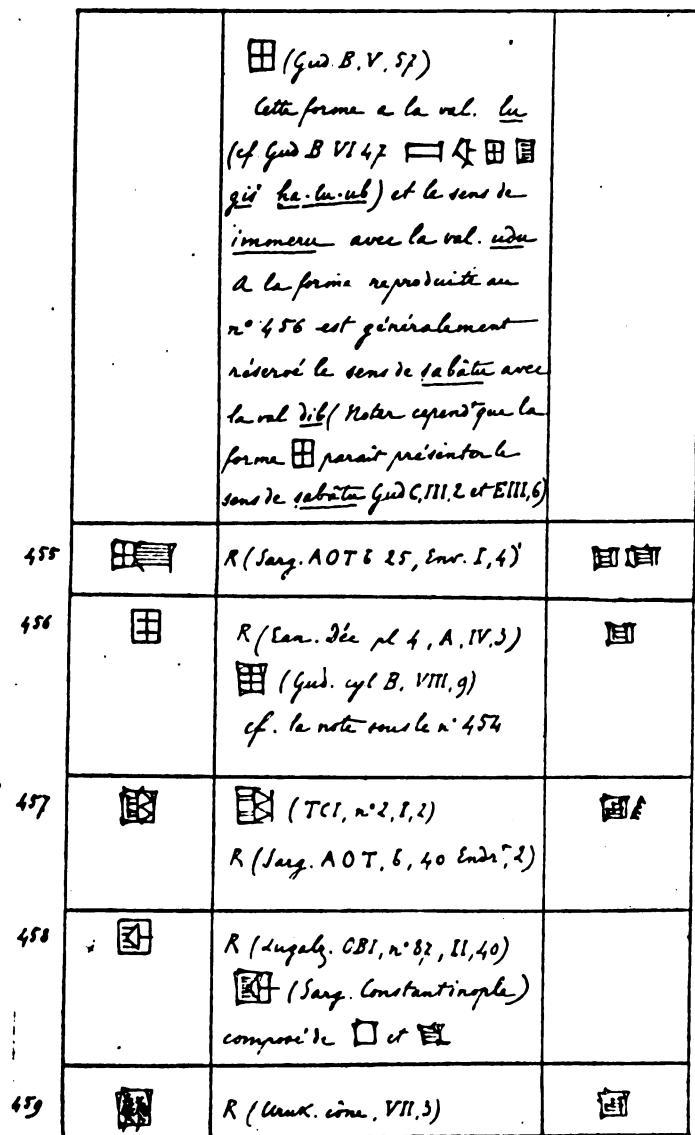 (Gud. B. V. 57)
Cette forme a la val. lu
(cf Gud B VI 47
giš ha-lu-ub) et le sens de
immeru avec la val. udu
A la forme reproduite au
n° 456 est généralement
réservé le sens de sabâtu avec
la val dib (Noter cepend^t que la
forme paraît présenter le
sens de sabâtu Gud C, III, 2 et E III, 6)
455 R (Sarg. AOT b 25, Env. I, 4)
456 R (Ean. Déc pl 4, A, IV, 3)
(Gud. cyl B, VIII, 9)
cf. la note sous le n° 454
457 (TCI, n° 2, I, 2)
R (Sarg. AOT, b, 40 2)
458 R (Lugalz. CBI, n° 87, II, 40)
(Sarg. Constantinople)
composé de et
459 R (Uruk. cône, VII, 3)